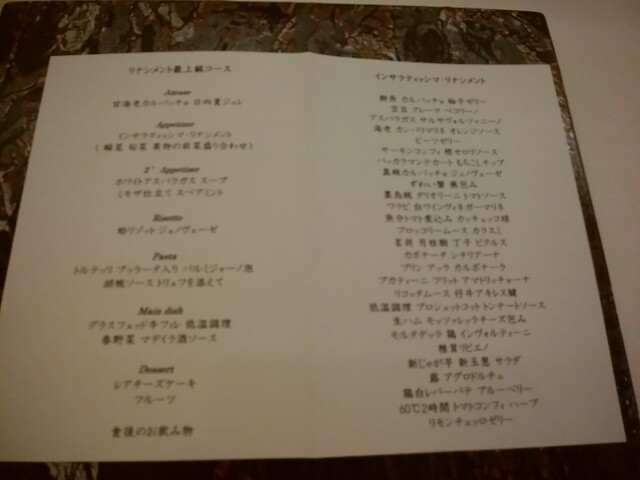 リナシメント最上級コース
Amuse
甘海老カルパッチョ 日向夏ジュレ
Appetizer
インサラティッシマ・リナシメント
( 鮮菜 旬菜 果物の前菜盛り合わせ )
2° Appetizer
ホワイトアスパラガス スープ
ミモザ仕立て スペアミント
Risotto
蛤リゾット ジェノヴェーゼ
Pasta
トルテッリ ブッラータ入り パルミジャーノ泡
胡桃ソース トリュフを添えて
Main dish
グラスフェッド牛フィレ 低温調理
春野菜 マデイラ酒ソース
Dessert
レアチーズケーキ
フルーツ
食後のお飲み物
インサラティッシマ・リナシメント
鮮魚 カルパッチョ 柚子ゼリー
空豆 クレーマ ペコリーノ
アスパラガス サルサヴォルファニーノ
海老 カンパリマリネ オレンジソース
ビーツゼリー
サーモンコンフィ 根セロリソース
バッカラマンテカート もろこしチップ
真鯛カルパッチョ ジェノヴェーゼ
ずわい蟹 蕪包み
墨烏賊 グリオリーニ トマトソース
ワラビ 白ワインヴィネガーマリネ
魚介トマト煮込み カッチュッコ球
ブロッコリームース カラスミ
茗荷 月桂樹 丁子 ピクルス
カポナータ シチリアーナ
プリン アッラ カルボナーラ
ブカティーニ フリット アマトリッチャーナ
リコッタムース 仔牛アキレス腱
低温調理 プロシュットコット トンナートソース
生ハム モッツァレッラチーズ包み
モルタデッラ 鶏 インヴォルティーニ
椎茸リピエノ
新じゃが芋 新玉葱 サラダ
藤 アグロドルチェ
鶏白レバーパテ ブルーベリー
60℃2時間 トマトコンフィ ハーブ
リモンチェッロゼリー